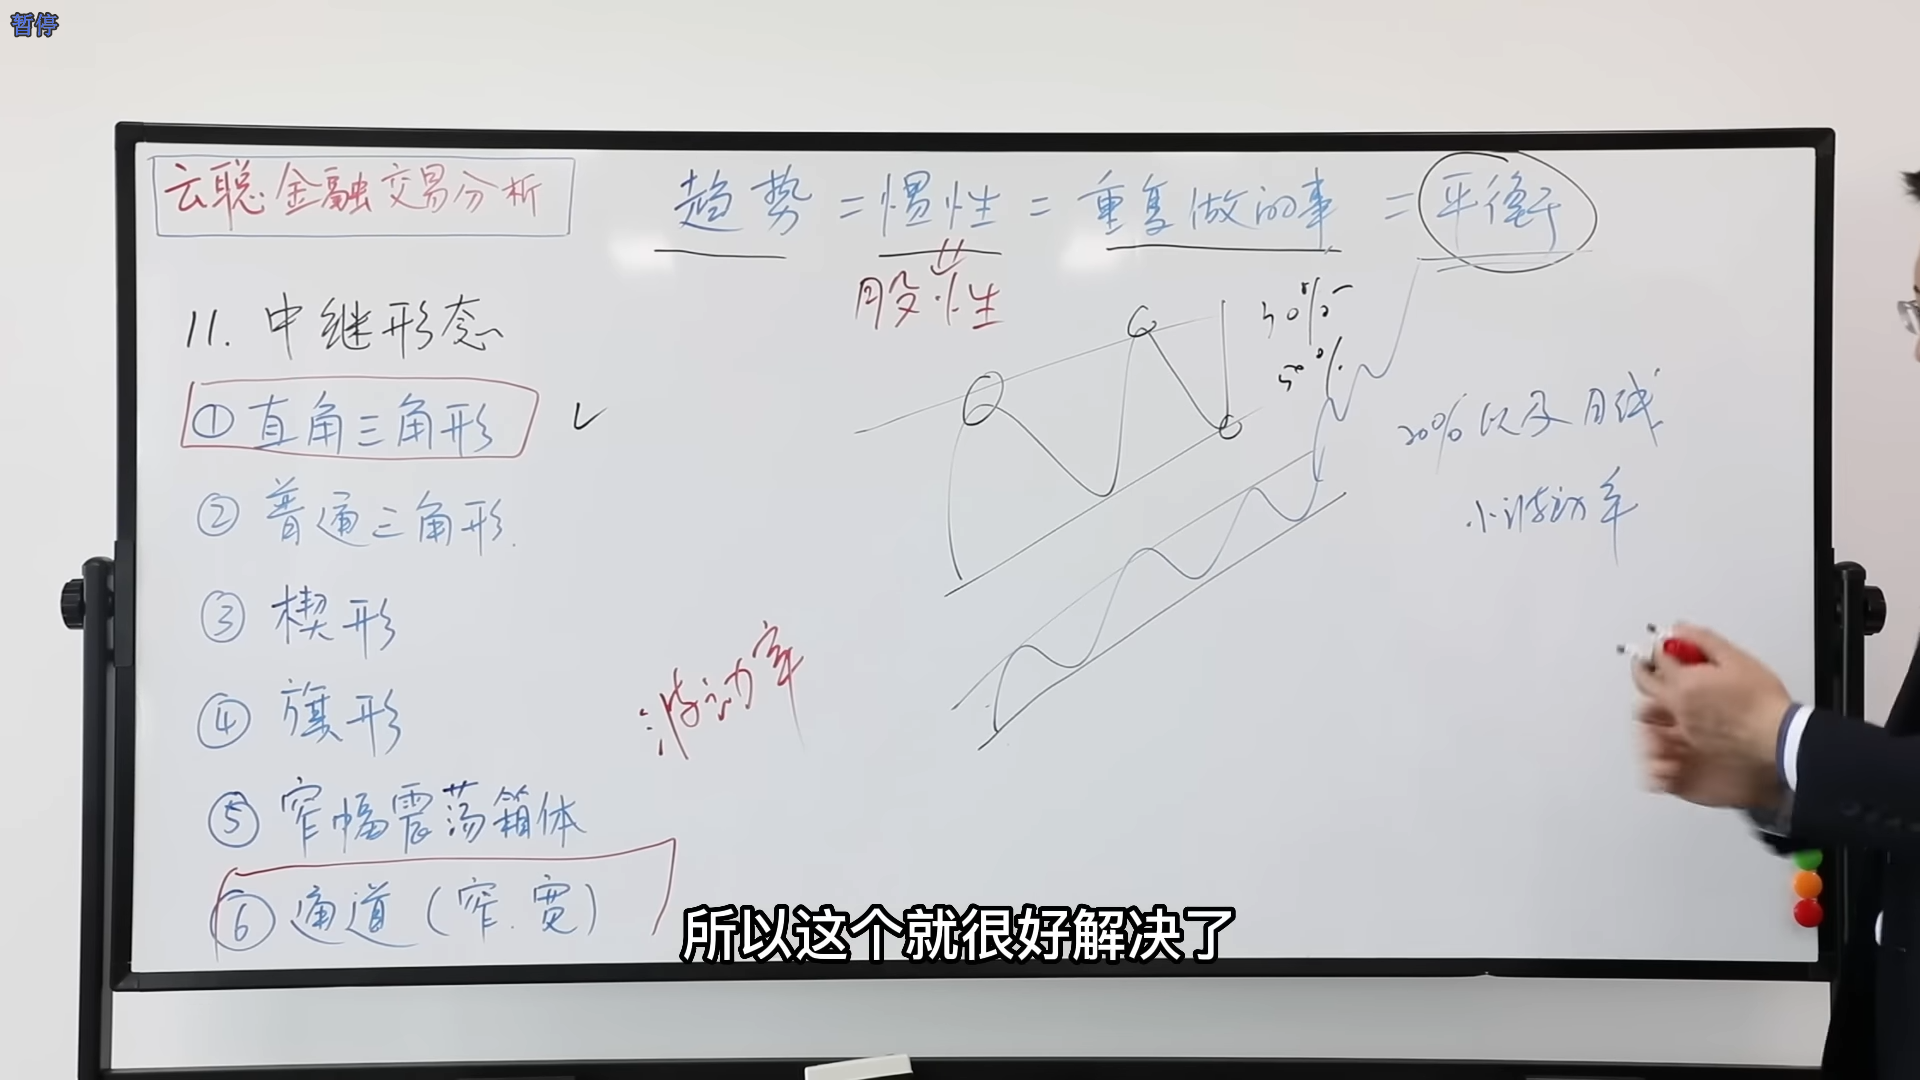 暂停
云聪金融交易分析
趋势 = 惯性 = 重复做的事 = 平衡
股性
11. 中继形态
① 直角三角形
② 普通三角形
③ 楔形
④ 旗形
⑤ 窄幅震荡箱体
⑥ 通道(窄.宽)
波动率
50%
20%以及月线
小波动率
所以这个就很好解决了